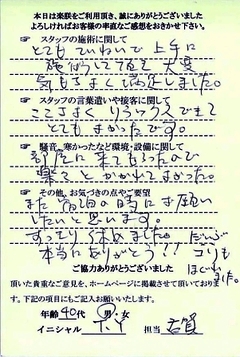 本日は楽咲をご利用頂き、誠にありがとうございました
よろしければお客様の率直なご感想をおきかせ下さい。
☞ スタッフの施術に関して
とてもていねいで上手に
施術して頂き大変
気もちよく満足しました。
☞ スタッフの言葉遣いや接客に関して
ここちよくりらっくすできて
とてもよかったです。
☞ 騒音、寒かったなど環境・設備に関して
部屋に来てもらったので
楽でとかれてよかった。
☞ その他、お気づきの点やご要望
また宿泊の時にお願い
したいと思います。
すっきり休めました。だいぶ
本当にありがとう!! コリも
ほぐれました。
ご協力ありがとうございました
頂いた貴重なご意見を、ホームページに掲載させて頂いております。下記の項目にもご記入お願いいたします。
年齢 40代 男・女
イニシャル 担当 古賀